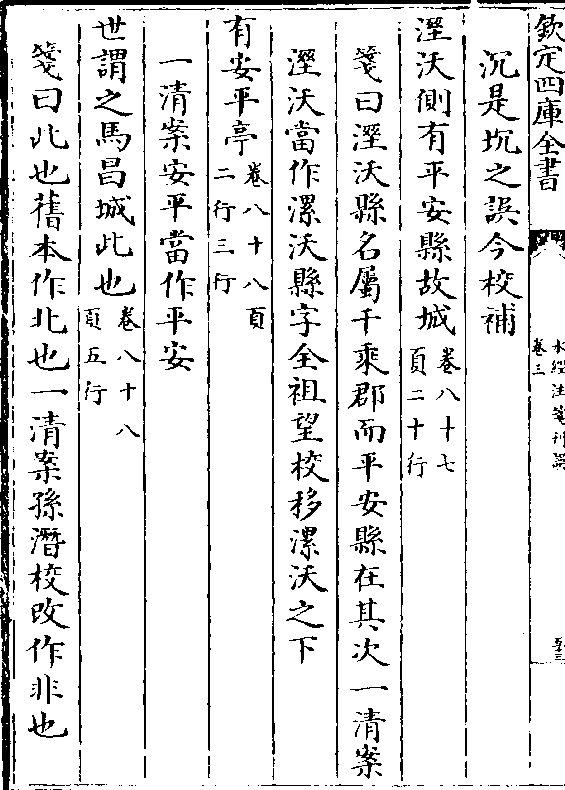 欽定四庫全書
水經注箋刊誤
卷三
沉是坈之誤今校補
溼沃側有平安縣故城卷八十七頁二十行
箋曰溼沃縣名屬千乘郡而平安縣在其次一清案
溼沃當作漯沃縣字全祖望校移漯沃之下
有安平亭卷八十八頁二行三行
一清案安平當作平安
世謂之馬昌城此也卷八十八頁五行
箋曰此也舊本作北也一清案孫潛校改作非也